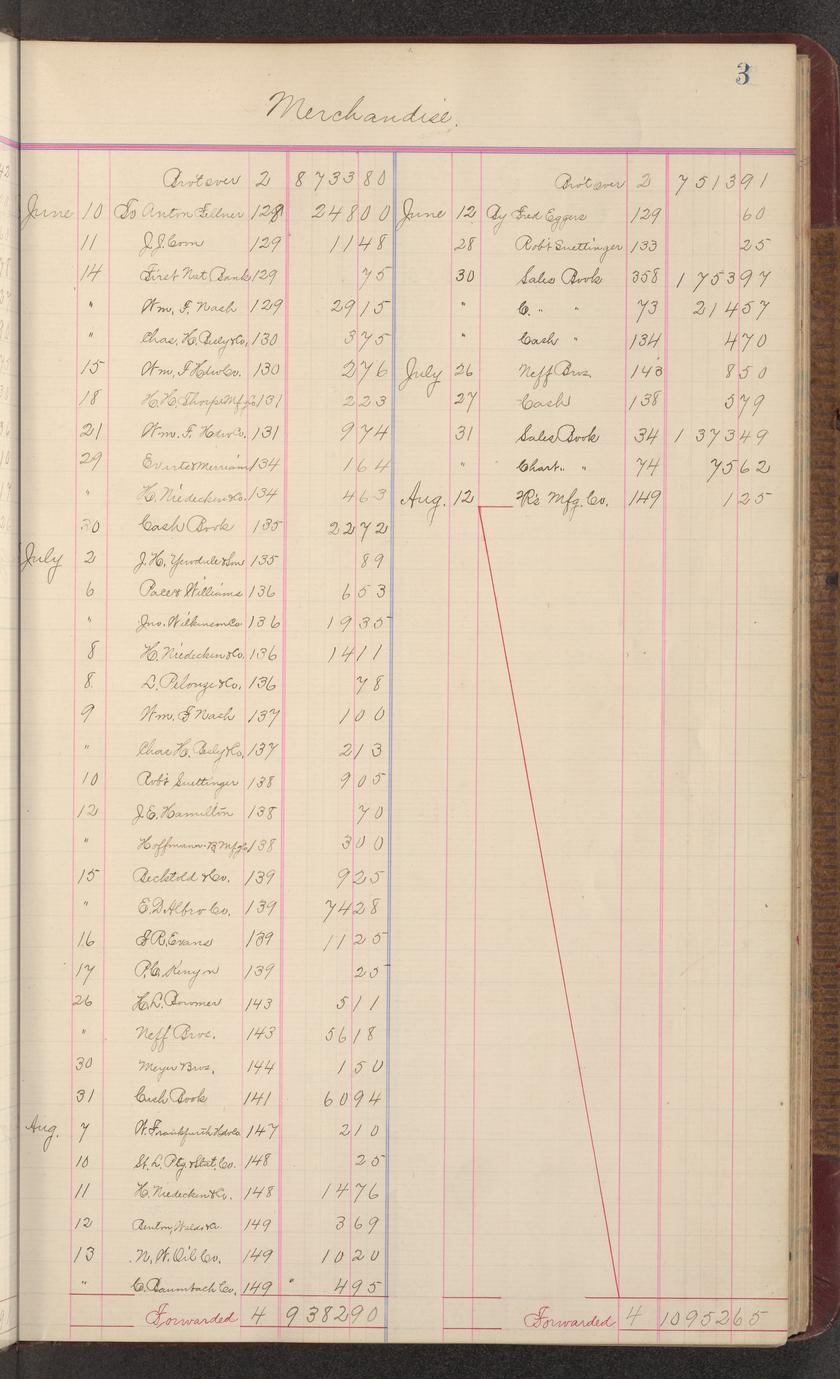 3
Merchandise.
Bro't over 2 8 733 80
June 10 To Anton Fellner 128 248 00
11 J.J. Corn 129 11 48
14 First Nat Bank 129 75
" Wm. F. Nash 129 29 15
" Chas. H. Besly & Co. 130 3 75
15 Wm. F Hdw Co. 130 2 76
18 H.H. Thorpe Mfg Co 131 2 23
21 Wm. F. Hdw Co. 131 9 74
29 Evarts & Merriam 134 1 64
" H. Niedecken & Co. 134 4 63
30 Cash Book 135 22 72
July 2 J.H. & Son 135 89
6 Pace & Williams 136 6 53
" Jno. Wilkinson Co 136 19 35
8 H. Niedecken & Co. 136 14 11
8 L. Pelouze & Co. 136 78
9 Wm. F Nash 137 1 00
" Chas H. Besly & Co. 137 2 13
10 Rob't Suettinger 138 9 05
12 J.E. Hamilton 138 70
" Hoffmann B. Mfg Co 138 3 00
15 Bechtold & Co. 139 9 25
" E.D. Albro Co. 139 74 28
16 F.R. Evans 139 11 25
17 P.C. Kenyon 139 25
26 H.L. Bowmer 143 5 11
" Neff Bros. 143 56 18
30 Meyer Bros. 144 1 50
31 Cash Book 141 60 94
Aug. 7 W. Frankfurth Hdw Co 147 2 10
10 St. L. Ptg & Stat. Co. 148 25
11 H. Niedecken & Co. 148 14 76
12 Benton, Waldo & Co. 149 3 69
13 N.W. Oil Co. 149 10 20
" C. Baumbach Co. 149 4 95
Forwarded 4 9 382 90
Bro't over 2 7 513 91
June 12 By Fred Eggers 129 60
28 Rob't Suettinger 133 25
30 Sales Book 358 1 753 97
" C. " " 73 214 57
" Cash " 134 4 70
July 26 Neff Bros. 143 8 50
27 Cash 138 5 79
31 Sales Book 34 1 373 49
" Chart. " 74 75 62
Aug. 12 Mfg. Co. 149 1 25
Forwarded 4 10 952 65